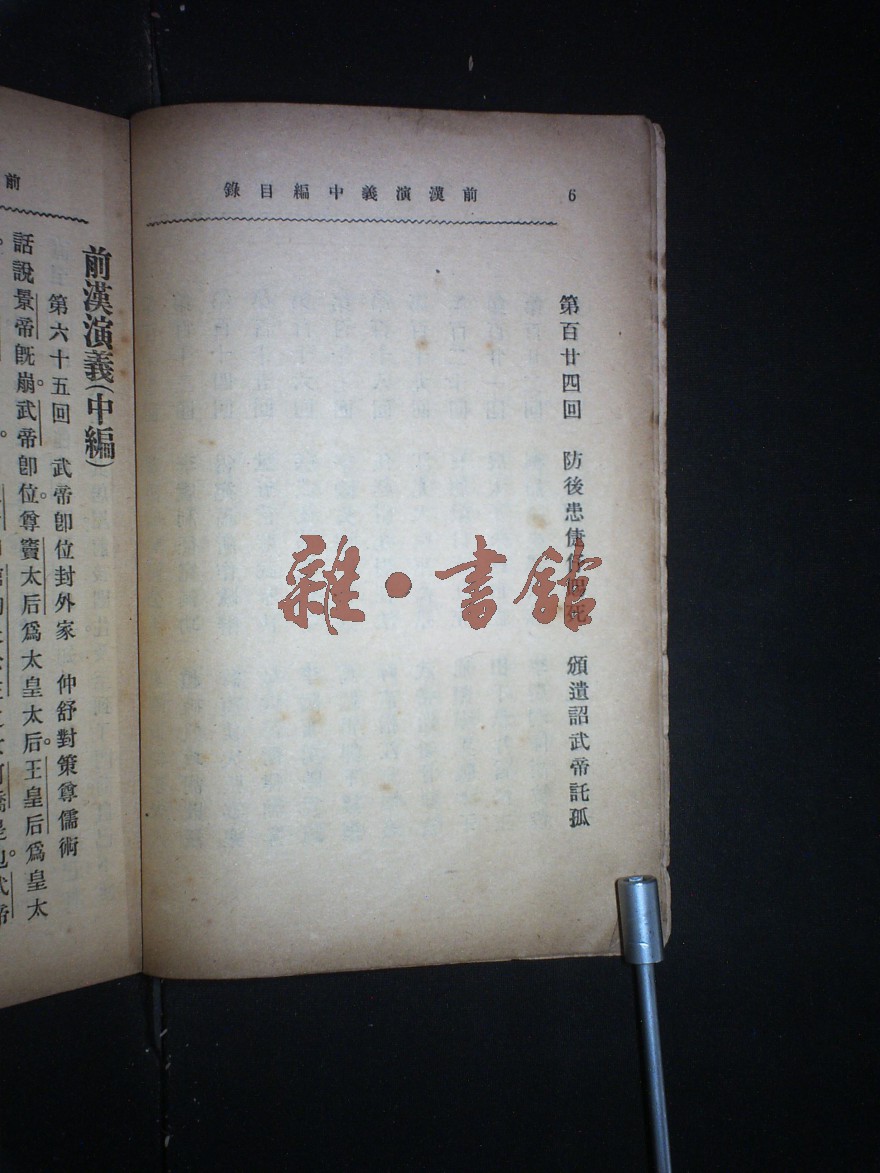 6
前漢演義中編目錄
第百廿四回 防後患倢伃賜死 頒遺詔武帝託孤
雜・書館
前
前漢演義(中編)
第六十五回 武帝卽位封外家 仲舒對策尊儒術
話說景帝既崩。武帝卽位。尊竇太后爲太皇太后。王皇后爲皇太